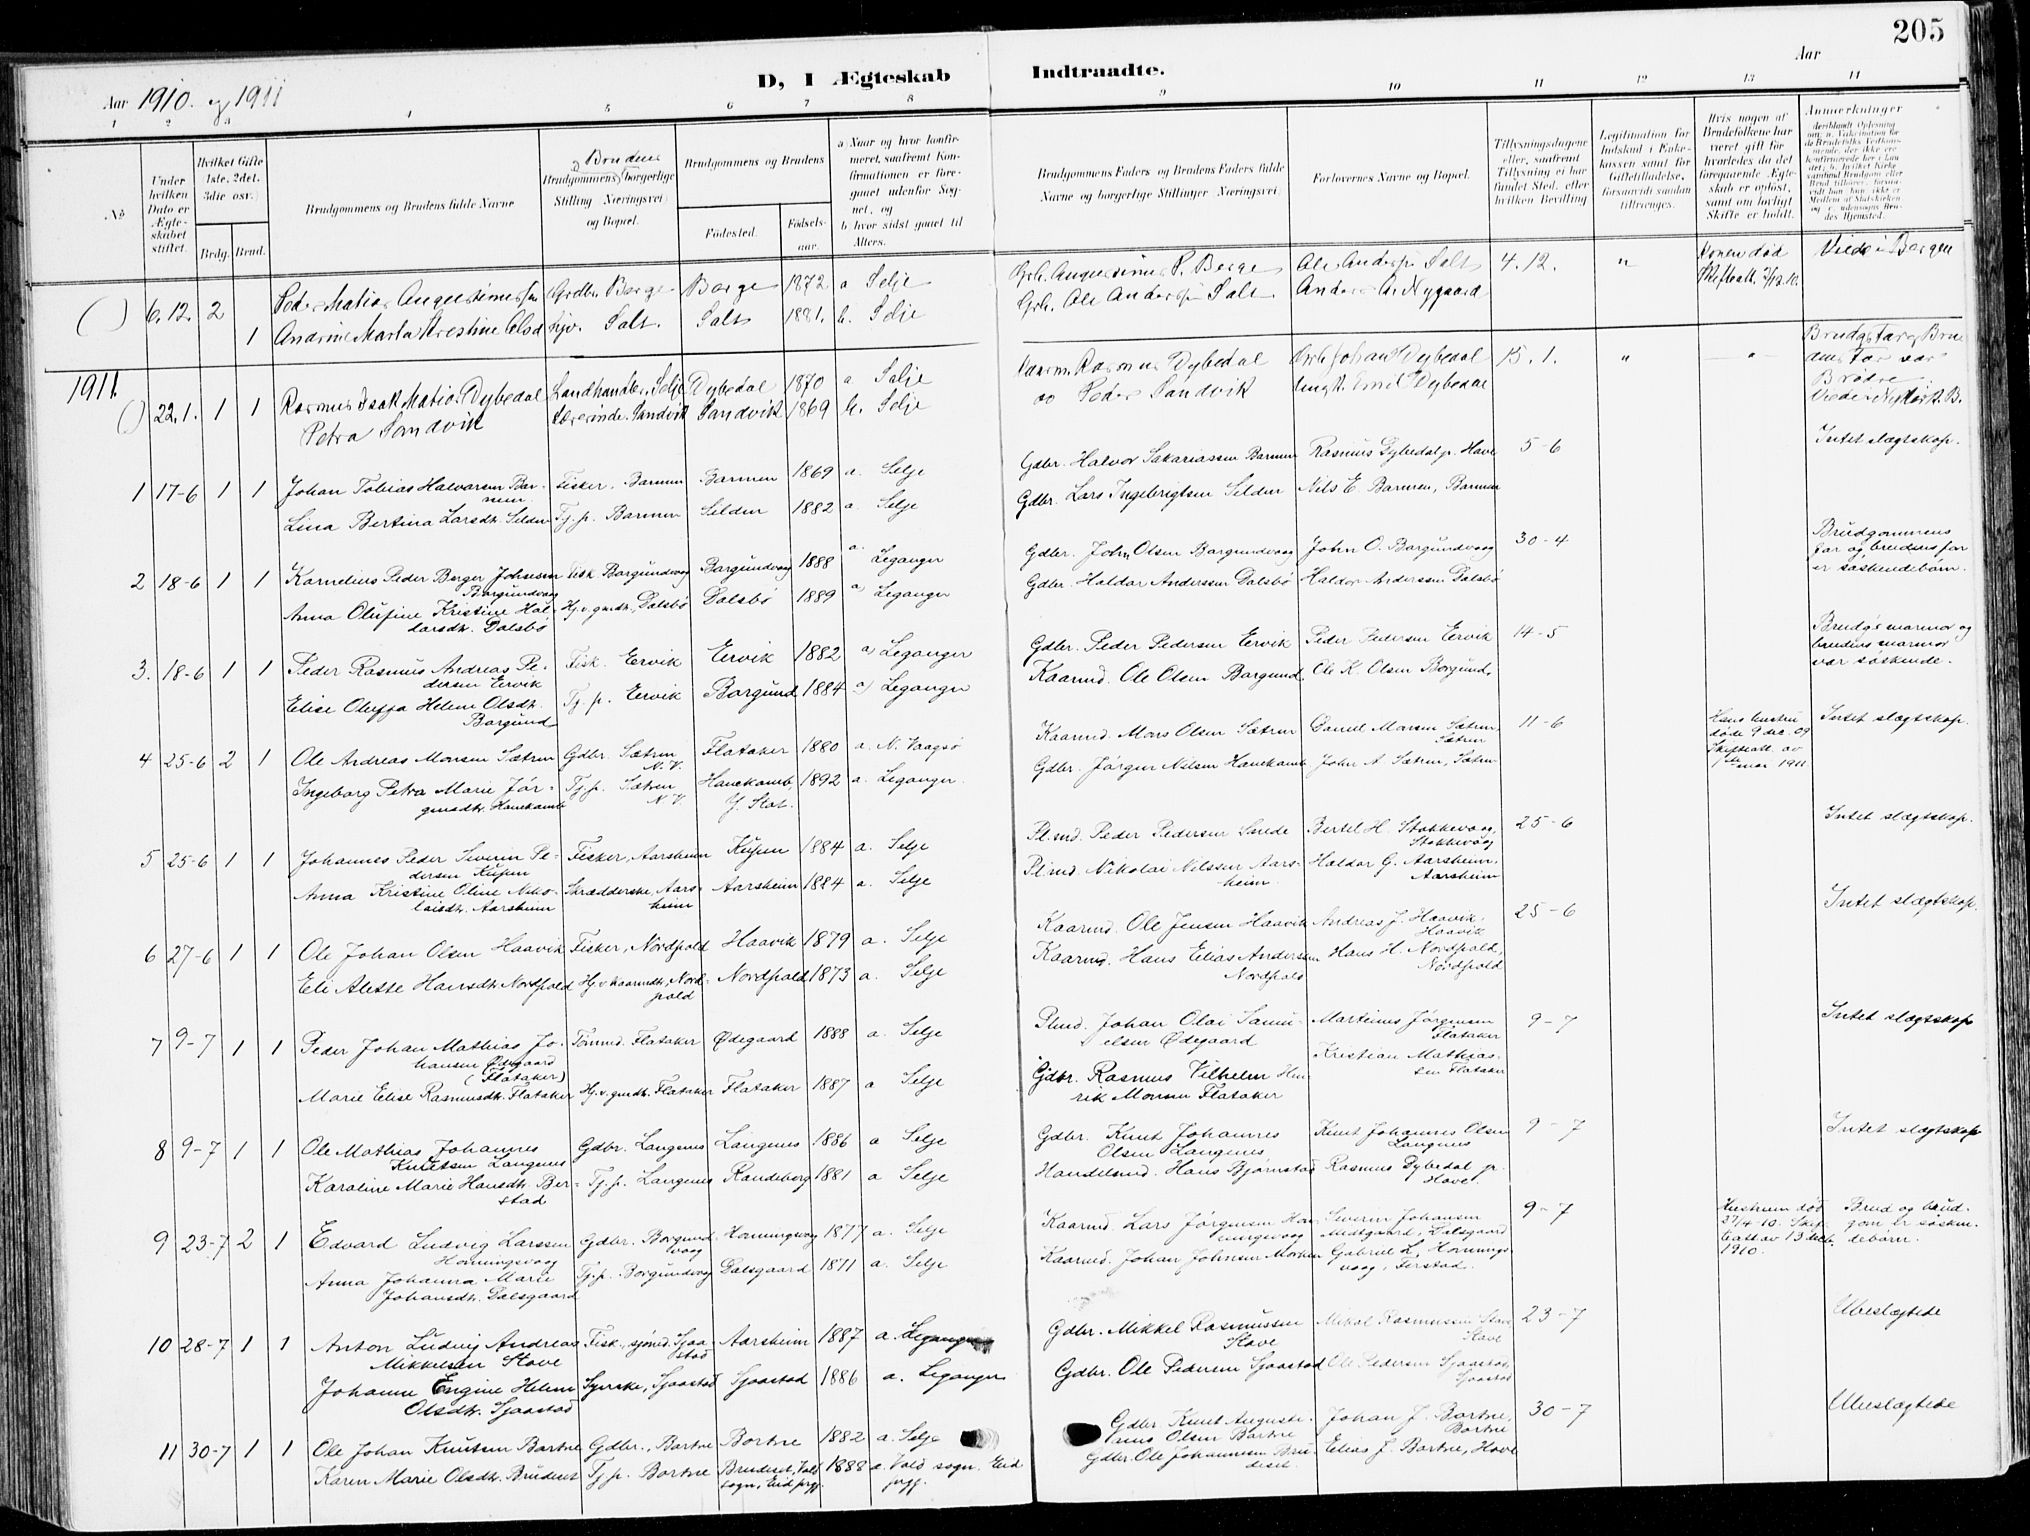 205
D, I Ægteskab Indtraadte.
Aar 1910 og 1911
Aar
1 2 3 4 5 6 7 8 9 10 11 12 13 14
No.
Under hvilken Dato er Ægteskabet stiftet.
Hvilket Gifte 1ste, 2det, 3die osv.
Brdg. Brud.
Brudgommens og Brudens fulde Navne
Brudens
Brudgommens borgerlige Stilling Næringsvei og Bopæl.
Brudgommens og Brudens
Fødested.
Fødselsaar.
a Naar og hvor konfirmeret, saafremt Konfirmationen er foregaaet udenfor Sognet, og
b hvor sidst gaaet til Alters.
Brudgommens Faders og Brudens Faders fulde Navne og borgerlige Stillinger Næringsvei.
Forlovernes Navne og Bopæl.
Tillysningsdagene eller, saafremt Tillysning ei har fundet Sted, efter hvilken Bevilling
Legitimation for Indskud i Enkekassen samt for Giftetilladelse, forsaavidt saadan tiltrænges.
Hvis nogen af Brudefolkene har været gift før hvorledes da det foregaaende Ægteskab er opløst, samt om lovligt Skifte er holdt.
Anmerkninger
( ) 6.12. 2 Peder Matias Augustinussen Grdbr. Berge Berge 1872 a Selje Grb. Augustinus P. Berge Ole Anders. Salt 4.12. " Konen død Viede i Bergen
1 Andrine Marta Kirstine Olsd Hjv. Salt. Salt 1881. b. Selje Grb. Ole Anders. Salt Anders A. Nygaard
1911.
( ) 22.1. 1 1 Rasmus Isak Matias Dybedal Landhandler, Selje Dybedal 1870 a Selje Rasmus Dybedal Johan Dybedal 15.1. " "
Brudgs far og Brudens Far var Brødre
Petra Sandvik Lærerinde. Sandvik Sandvik 1869 b. Selje Peder Sandvik Emil Dybedal
1 17-6 1 1 Johan Tobias Halvarsen Barmen Fisker. Barmen Barmen 1869 a. Selje Gdbr. Halvor Sakariassen Barmen Rasmus Dybedal jr. Hove 5-6 Intet slægtskap.
Lina Bertina Larsdtr. Selden Tj.p. Barmen Selden 1882 a. Selje Gdbr. Lars Ingebrigtsen Selden Nils E. Barmen, Barmen
2 18-6 1 1 Kornelius Peder Berger Johnsen Borgundvaag Fisk. Borgundvaag Borgundvaag 1888 a. Leganger Gdbr. John Olsen Borgundvaag John O. Borgundvaag 30-4 Brudgommens far og brudens far er søskendebørn.
Anna Olufine Kristine Haldorsdtr. Dalsbø Hj.v. gmdtr. Dalsbø Dalsbø 1889 a) Leganger Gdbr. Haldor Anderssen Dalsbø Haldor Anderssen Dalsbø
3. 18-6 1 1 Peder Rasmus Andreas Pedersen Ervik Fisk. Ervik Ervik 1882 a) Leganger Gdbr. Peder Pedersen Ervik Peder Pedersen Ervik 14-5 Brudgs mormor og brudens mormor var søskende.
Elise Oluffa Helene Olsdtr. Borgund Tj.p. Ervik Borgund 1884 a) Leganger Kaarmd. Ole Olsen Borgund Ole K. Olsen Borgund.
4 25-6 2 1 Ole Andreas Monsen Sætren Gdbr. Sætren N.V. Flataker 1880 a. N. Vaagsø Kaarmd. Mons Olsen Sætren Daniel Monsen Sætren, Sætren 11-6 Hans hustru døde 9 dec. 09 Skifteatt. av mai 1911. Intet slægtskap.
Ingeborg Petra Marie Jørgensdtr. Hanekamb Tj.p. Sætren N.V. Hanekamb, Y. Stat. 1892 a. Leganger. Gdbr. Jørgen Nilsen Hanekamb John A. Sætren, Sætren
5 25-6 1 1 Johannes Peder Severin Pedersen Kupen Fisker, Aarsheim Kupen 1884 a. Selje Pl.md. Peder Pedersen Smede Bertel H. Stokkevaag, Stokkevaag 25-6 Intet slægtskap.
Anna Kristine Oline Nikolaisdtr. Aarsheim Skrædderske, Aarsheim Aarsheim 1884 a. Selje Pl.md. Nikolai Nilssen Aarsheim Haldor G. Aarsheim, Aarsheim
6 27-6 1 1 Ole Johan Olsen Haavik Fisker, Nordpold Haavik 1879 a. Selje Kaarmd. Ole Jensen Haavik Andreas J. Haavik, Haavik 25-6 Intet slægtskap
Eli Alette Hansdtr. Nordpold Hj.v. kaarmdtr., Nordpold Nordpold 1873 a. Selje Kaarmd. Hans Elias Anderssen Nordpold Hans H. Nordpold, Nordpold
7 9-7 1 1 Peder Johan Mathias Johansen Ødegaard (Flataker) Tømmd. Flataker Ødegaard 1888 a. Selje Plmd. Johan Olai Samuelsen Ødegaard Martinus Jørgensen Flataker 9-7 Intet slægtskap
Marie Elise Rasmusdtr. Flataker Hj.v. gmdtr. Flataker Flataker 1887 a Selje Gdbr. Rasmus Vilhelm Henrik Monsen Flataker Kristian Mathiassen Flataker
8 9-7 1 1 Ole Mathias Johannes Knutsen Langenes Gdbr. Langenes Langenes 1886 a Selje Gdbr. Knut Johannes Olsen Langenes Knut Johannes Olsen Langenes 9-7 Intet slægtskap
Karoline Marie Hansdtr. Berstad Tj.p. Langenes Randeberg 1881 a Selje Handelsmd. Hans Bjørnstad Rasmus Dybedal jr. Hove.
9 23-7 2 1 Edvard Ludvig Larssen Horningsvaag Gdbr. Borgundvaag Horningsvaag 1877 a. Selje Kaarmd. Lars Jørgensen Horningsvaag Severin Johansen Midtgaard, Dalsgaard 9-7 Hustruen død 27/4-10. Skifteatt av 13 decb. 1910. Brud og brudgom er søskendebørn.
Anna Johanna Marie Johansdtr. Dalsgaard Tj.p. Borgundvaag Dalsgaard 1871 a. Selje Kaarmd. Johan Johnsen Morken Gabriel L. Horningsvaag, Ferstad.
10 28-7 1 1 Anton Ludvig Andreas Mikkelsen Stave Fisk., sjømd. Sjaastad Aarsheim 1887 a. Leganger Gdbr. Mikkel Rasmussen Stave Mikal Rasmussen Stave Stave 23-7 Ubeslægtede
Johanne Engine Helene Olsdtr. Sjaastad Syerske, Sjaastad Sjaastad 1886 a. Leganger Gdbr. Ole Pedersen Sjaastad Ole Pedersen Sjaastad, Sjaastad
11 30-7 1 1 Ole Johan Knutsen Bortne Gdbr., Bortne Bortne 1882 a. Selje Gdbr. Knut Augustinus Olsen Bortne Johan J. Bortne, Bortne 30-7 Ubeslægtede
Karen Marie Olsdtr. Bruderet Tj.p. Bortne Bruderet, Vold sogn, Eid prgj. 1888 a. Vold sogn. Eid prgj. Gdbr. Ole Johannesen Bruderet Elias J. Bortne, Hove